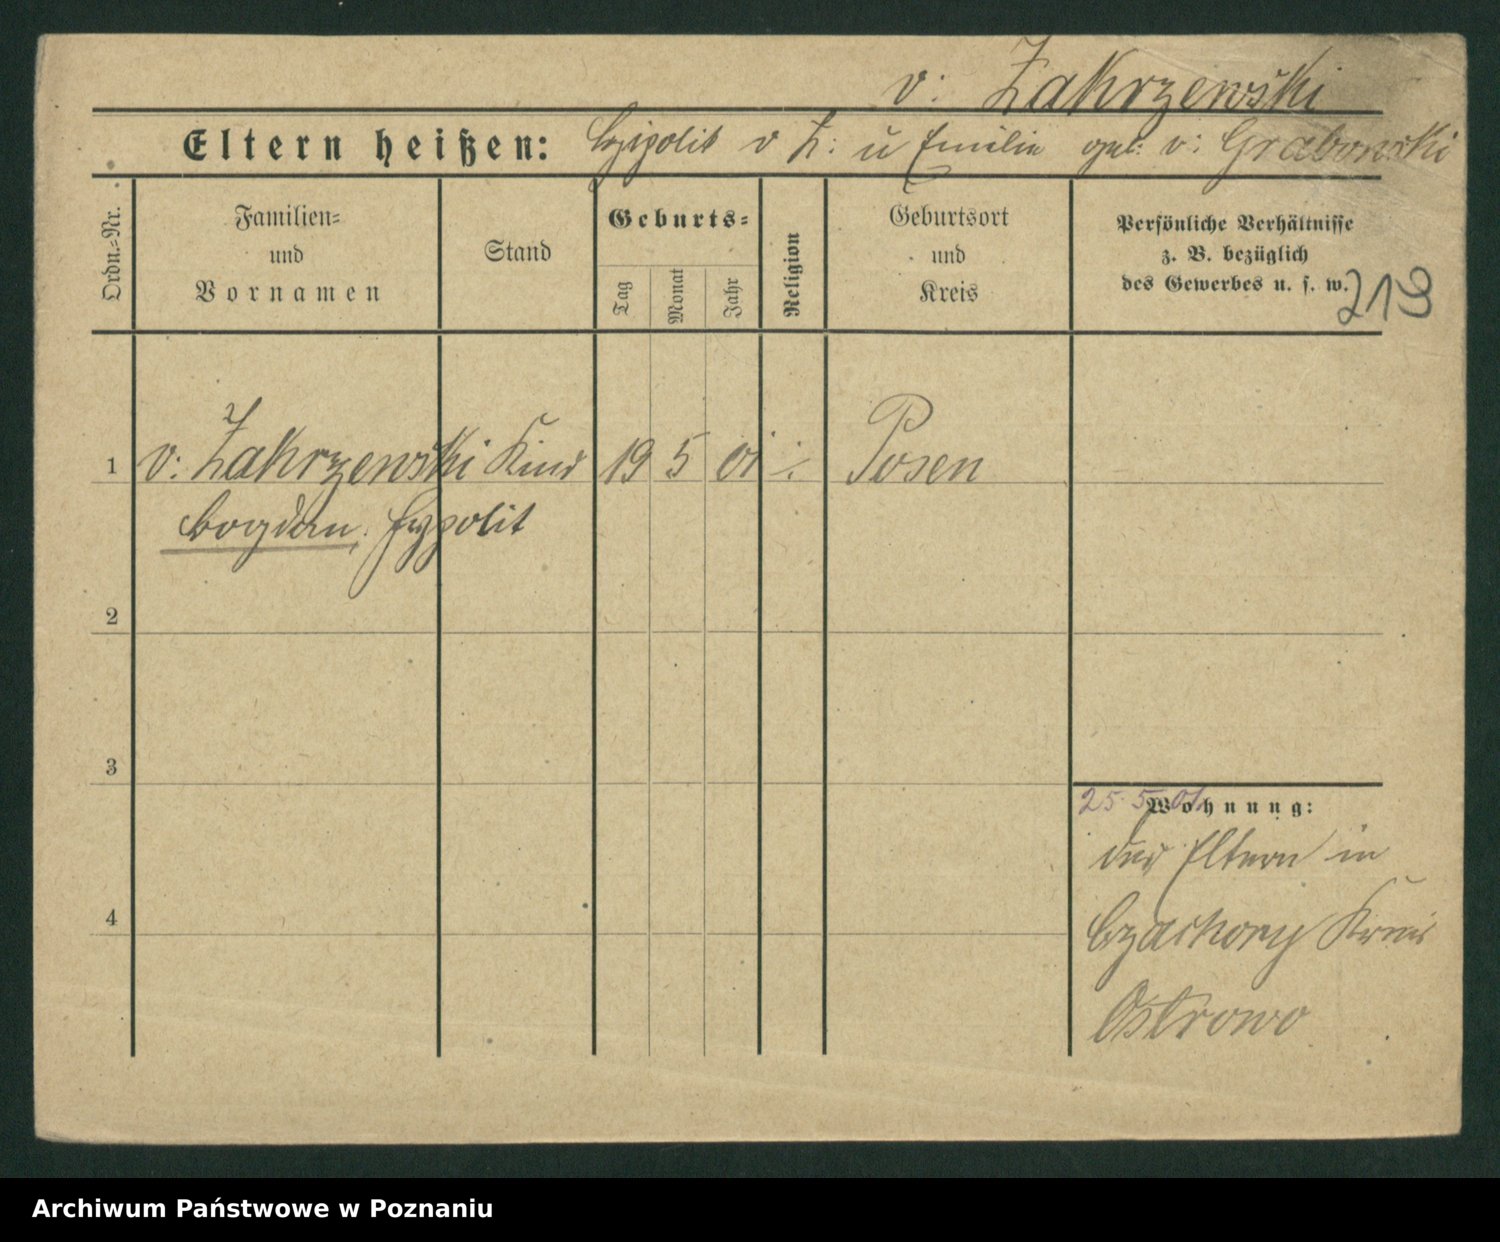 v: Zakrzewski
Eltern heißen: v Z: u Emilie geb: v: Grabowski
Ordn.=Nr.
Familien=
und
Vornamen
Stand
Geburts=
Tag
Monat
Jahr
Religion
Geburtsort
und
Kreis
Persönliche Verhältnisse
z. B. bezüglich
des Gewerbes u. s. w.
213
1 v: Zakrzewski Kind 19 5 01 Posen
Bogdan, Hypolit
2
3
25.5.01.
Wohnung:
der Eltern in
4 Czachory Kreis
Ostrowo
Archiwum Państwowe w Poznaniu